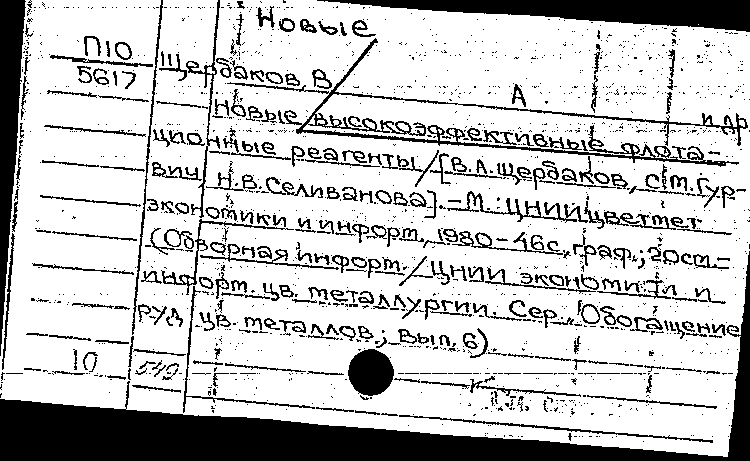 Новые
П10
5617
Щербаков, В. А. и др
Новые высокоэффективные флота-
ционные реагенты / [В.А.Щербаков, С.М.Гур-
вич, Н.В.Селиванова]. – М.: ЦНИИцветмет
экономики и информ., 1980 – 46с., граф.; 20см. –
(Обзорная информ. / ЦНИИ экономики и
информ. цв. металлургии. Сер. "Обогащение
руд цв. металлов.; Вып. 6).
10
549